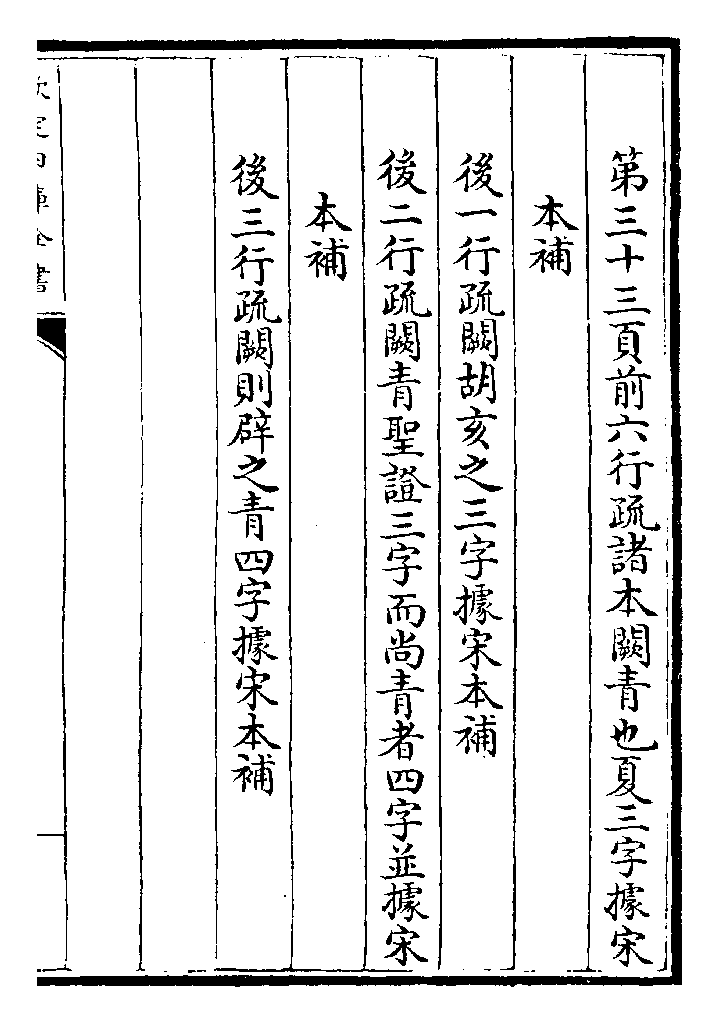 第三十三頁前六行疏諸本闕青也夏三字據宋
本補
後一行疏闕胡亥之三字據宋本補
後二行疏闕青聖證三字而尚青者四字並據宋
本補
後三行疏闕則辟之青四字據宋本補
欽定四庫全書